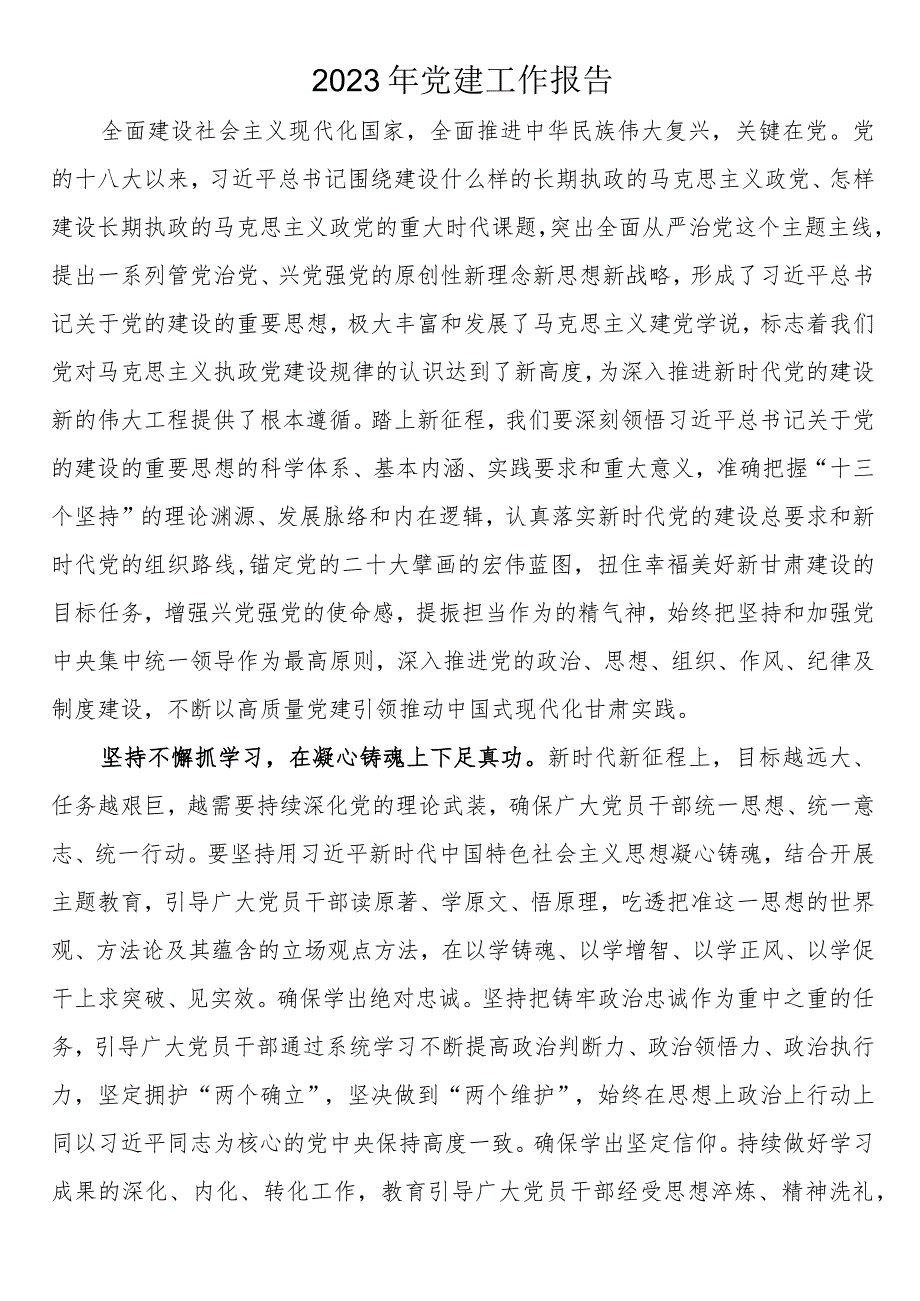 2023年党建工作报告
全面建设社会主义现代化国家，全面推进中华民族伟大复兴，关键在党。党
的十八大以来，习近平总书记围绕建设什么样的长期执政的马克思主义政党、怎样
建设长期执政的马克思主义政党的重大时代课题，突出全面从严治党这个主题主线，
提出一系列管党治党、兴党强党的原创性新理念新思想新战略，形成了习近平总书
记关于党的建设的重要思想，极大丰富和发展了马克思主义建党学说，标志着我们
党对马克思主义执政党建设规律的认识达到了新高度，为深入推进新时代党的建设
新的伟大工程提供了根本遵循。踏上新征程，我们要深刻领悟习近平总书记关于党
的建设的重要思想的科学体系、基本内涵、实践要求和重大意义，准确把握“十三
个坚持”的理论渊源、发展脉络和内在逻辑，认真落实新时代党的建设总要求和新
时代党的组织路线,锚定党的二十大擘画的宏伟蓝图，扭住幸福美好新甘肃建设的
目标任务，增强兴党强党的使命感，提振担当作为的精气神，始终把坚持和加强党
中央集中统一领导作为最高原则，深入推进党的政治、思想、组织、作风、纪律及
制度建设，不断以高质量党建引领推动中国式现代化甘肃实践。
坚持不懈抓学习，在凝心铸魂上下足真功。新时代新征程上，目标越远大、
任务越艰巨，越需要持续深化党的理论武装，确保广大党员干部统一思想、统一意
志、统一行动。要坚持用习近平新时代中国特色社会主义思想凝心铸魂，结合开展
主题教育，引导广大党员干部读原著、学原文、悟原理，吃透把准这一思想的世界
观、方法论及其蕴含的立场观点方法，在以学铸魂、以学增智、以学正风、以学促
干上求突破、见实效。确保学出绝对忠诚。坚持把铸牢政治忠诚作为重中之重的任
务，引导广大党员干部通过系统学习不断提高政治判断力、政治领悟力、政治执行
力，坚定拥护“两个确立”，坚决做到“两个维护”，始终在思想上政治上行动上
同以习近平同志为核心的党中央保持高度一致。确保学出坚定信仰。持续做好学习
成果的深化、内化、转化工作，教育引导广大党员干部经受思想淬炼、精神洗礼，